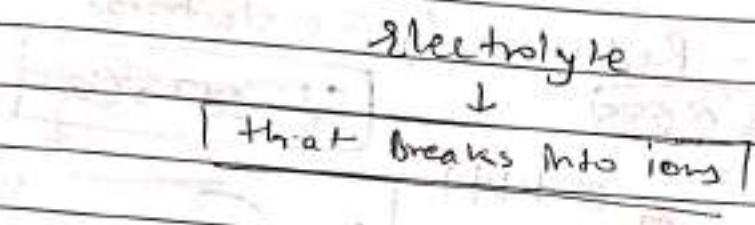 Electrolyte
↓
that Breaks into ions